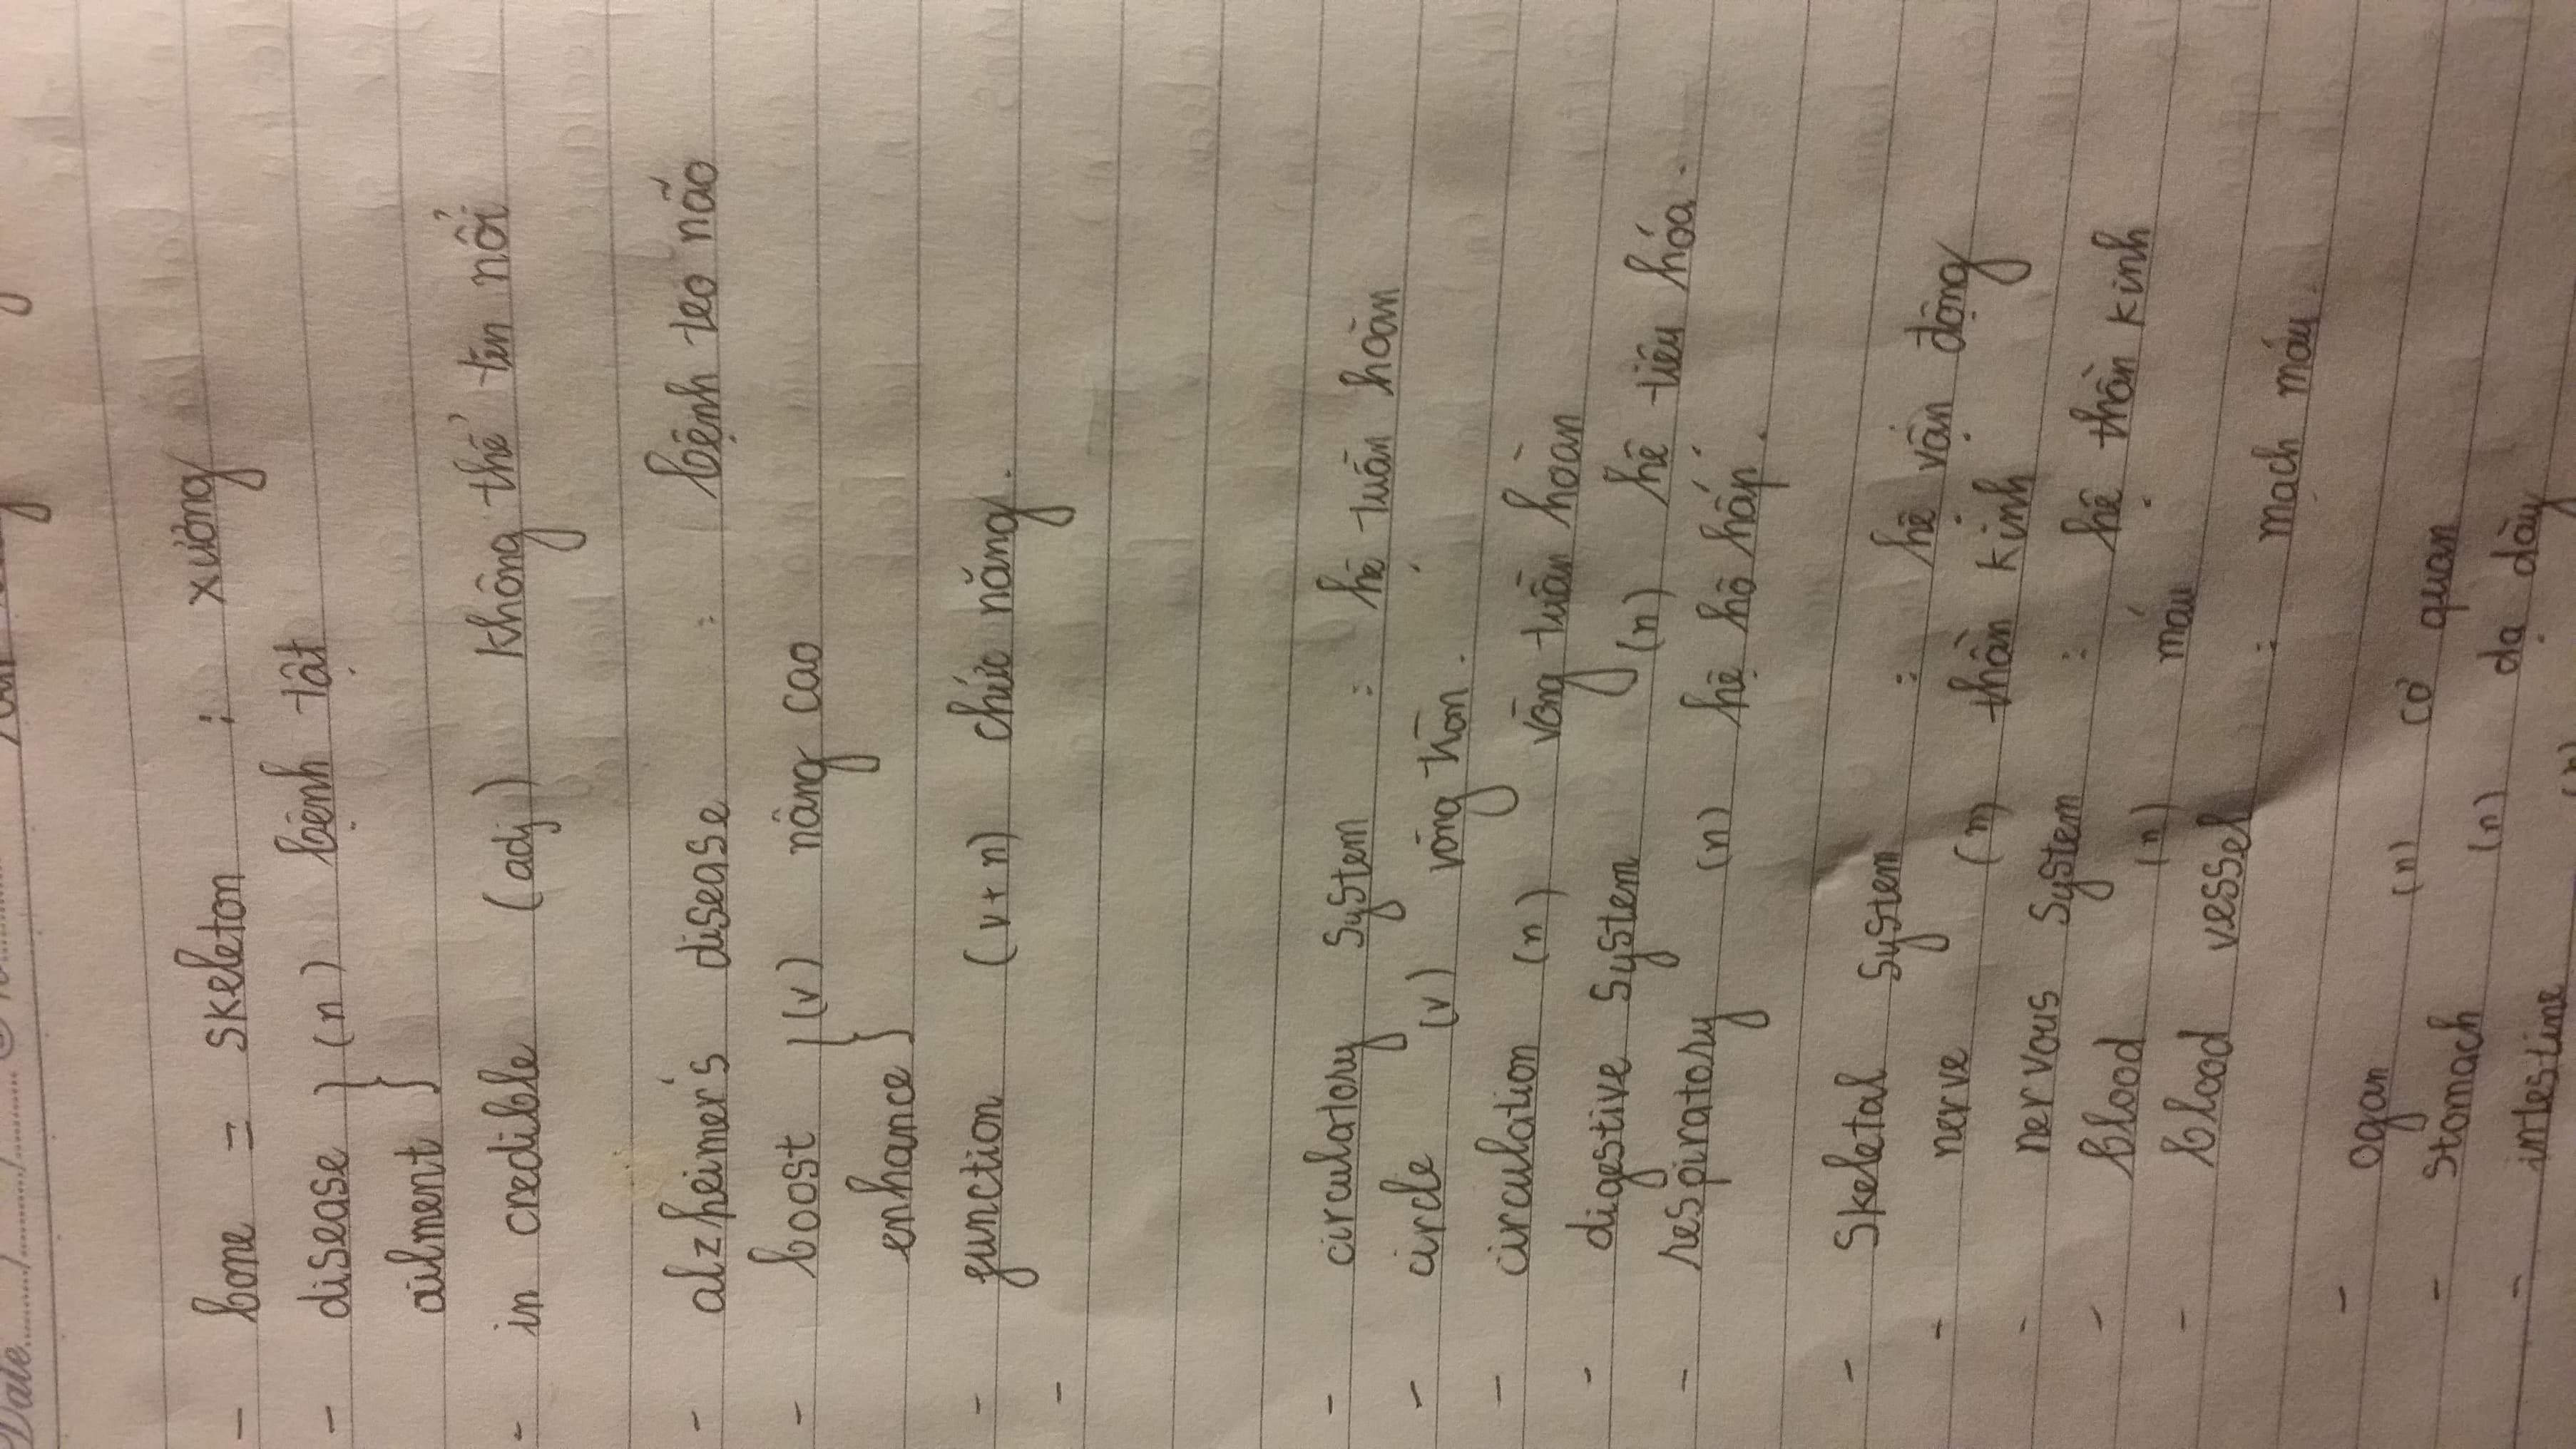 Date
- bone = skeleton : xương
- disease } (n) bệnh tật
ailment }
- in credible (adj) không thể tin nổi
- alzheimer's disease : bệnh teo não
- boost } (v) nâng cao
enhance }
- function (v+n) chức năng.
-
- circulatory system : hệ tuần hoàn
- circle (v) vòng tròn.
- circulation (n) vòng tuần hoàn
- digestive system (n) hệ tiêu hóa.
- respiratory (n) hệ hô hấp.
- skeletal system : hệ vận động
- nerve (n) thần kinh
- nervous system : hệ thần kinh
- blood (n) máu
- blood vessel : mạch máu.
- ogan (n) cơ quan
- stomach (n) dạ dày
- intestine (n)